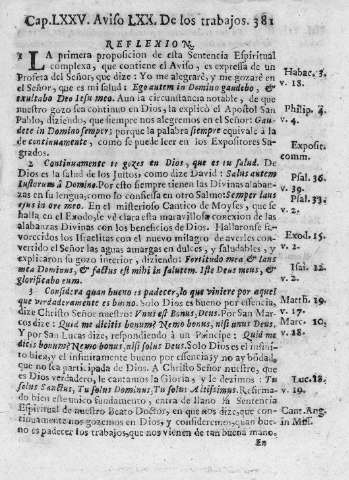 Cap.LXXV. Aviso LXX. De los trabajos. 381
REFLEXION.
1 LA primera proposicion de esta Sentencia Espiritual
complexa, que contiene el Aviso, es expressa de un
Profeta del Señor, que dize: Yo me alegrarè, y me gozarè en
el Señor, que es mi salud: Ego autem in Domino gaudebo, &
exultabo Deo Iesu meo. Aun la circunstancia notable, de que
sea continuo su gozo en Dios, la explicò el Apostol San
Pablo, diziendo, que siempre nos alegremos en el Señor: Gau-
dete in Domino semper; porque la palabra siempre equivale à la
de continuamente, como se puede leer en los Expositores Sa-
grados.
2 Continuamente te gozes en Dios, que es tu salud. De
Dios es la salud de los Justos, como dize David: Salus autem
Iustorum à Domino. Por esto siempre tienen las Divinas alaban-
zas en su lengua, como lo confiessa en otro Salmo: Semper laus
ejus in ore meo. En el famoso Cantico de Moyses, que se
halla en el Exodo, se vè clara esta maravillosa conexion de las
alabanzas Divinas con los beneficios de Dios. Hallaronse fa-
vorecidos los Israelitas con el nuevo milagro de averles con-
vertido el Señor las aguas amargas en dulces, y saludables, y
explicaron su gozo interior, diziendo: Fortitudo mea & laus
mea Dominus, & factus est mihi in salutem. Iste Deus meus, &
glorificabo eum.
3 Considera quan bueno es padecer, lo que viniere por aquel
que verdaderamente es bueno. Solo Dios es bueno por essencia,
dize Christo Señor nuestro: Unus est Bonus, Deus. Por San Mar-
cos dize: Quid me dicitis bonum? Nemo bonus, nisi unus Deus.
Y por San Lucas dize, respondiendo à un Principe: Quid me
dicitis bonum? Nemo bonus, nisi solus Deus. Solo Dios es el infini-
to bien, y el infinitamente bueno por essencia; y no ay bõdad,
que no sea participada de Dios. A Christo Señor nuestro, que
es Dios verdadero, le cantamos la Gloria, y le dezimos: Tu
solus Sanctus, Tu solus Dominus, Tu solus Altissimus.
do bien este unico fundamento, entra de llano la Sentencia
Espiritual de nuestro Beato Doctor, en que nos dize, que con-
tinuamente nos gozemos en Dios, y consideremos, quan bue-
no es padecer los trabajos, que nos vienen de tan buena mano.
En
Habac. 3.
v. 18.
Philip. 4
v. 4.
Exposit.
comm.
Psal. 36.
v. 39.
Psal. 33.
v. 2.
Exod. 15.
v. 2.
Isai. 12.
v. 2.
Matth. 19.
v. 17.
Marc. 10.
v. 18.
Luc. 18.
v. 19.
Cant. Ang.
in Miss.